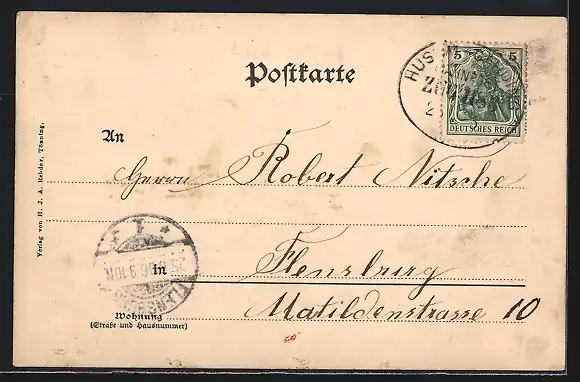 Postkarte
5 5
DEUTSCHES REICH
HUS
ZUG
An
Herrn Robert Nitsche
in Flensburg
Wohnung Matildenstrasse 10
(Straße und Hausnummer)
Verlag von H. J. A. Rehder, Tönning.